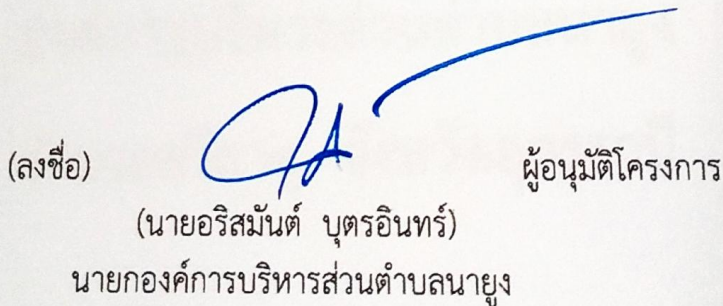 (ลงชื่อ) ผู้อนุมัติโครงการ
(นายอริสมันต์ บุตรอินทร์)
นายกองค์การบริหารส่วนตำบลนายูง